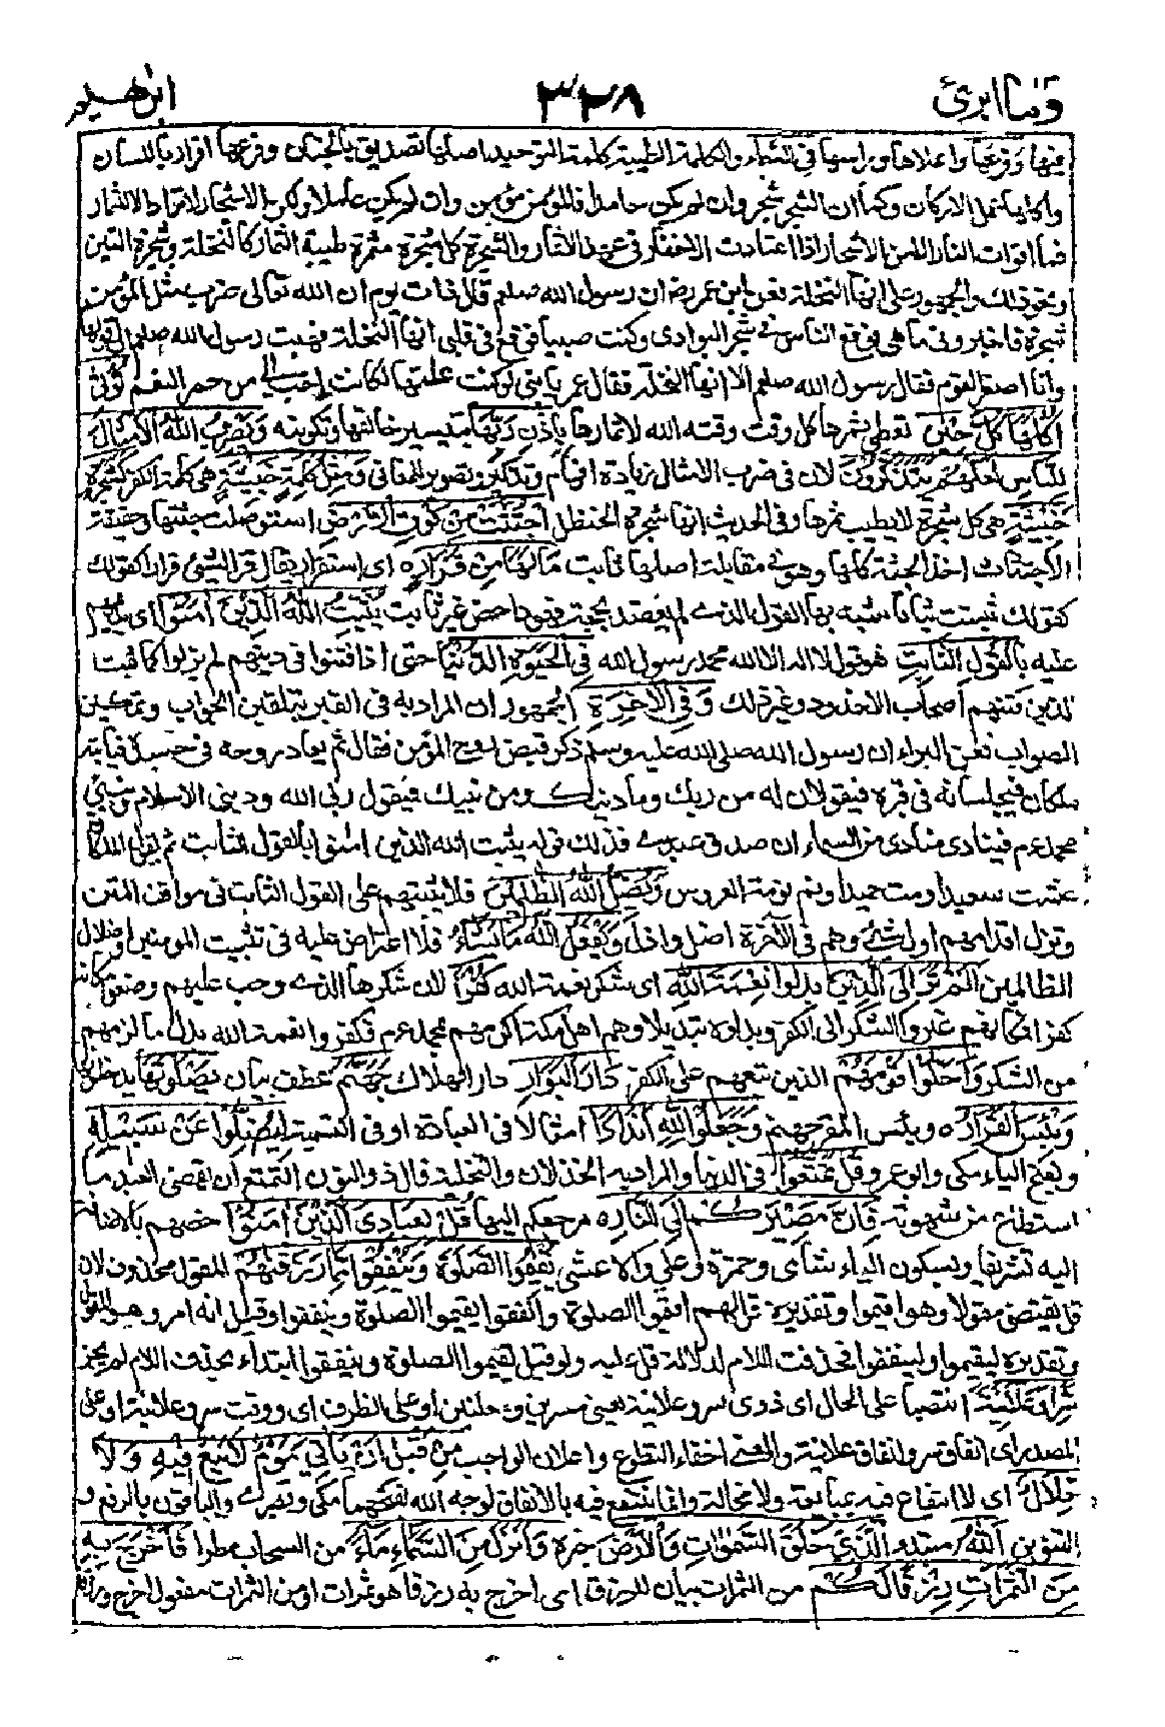 وما ابرئ ٣٢٨ ابرهيم
فيها وَفَرْعُهَا واعلاها وراسها فِي السَّمَاءِ والكلمة الطيبة كلمة التوحيد اصلها تصديق بالجنان وفرعها اقرار باللسان
واكلها عمل الاركان وكما ان الشجر شجر وان لم يكن حاملا فالمؤمن مؤمن وان لم يكن عاملا ولكن الاشجار لا تراد الا للثمار
فما اقوات النار الا من الاشجار اذا اعتادت الاخفار في عهد الاثمار والشجرة كل شجرة مثمرة طيبة الثمار كالنخلة وشجرة التين
ونحو ذلك والجمهور على انها النخلة فعن ابن عمر رض ان رسول الله صلعم قال ذات يوم ان الله تعالى ضرب مثل المؤمن
شجرة فاخبروني ما هي فوقع الناس في شجر البوادي وكنت صبيا فوقع في قلبي انها النخلة فهبت رسول الله صلعم ان اقولها
وانا اصغر القوم فقال رسول الله صلعم الا انها النخلة فقال عمر يا بني لو كنت قلتها لكانت احب الي من حمر النعم تُؤْتِي
اُكُلَهَا كُلَّ حِيْنٍ تعطي ثمرها كل وقت وقته الله لاثمارها بِاِذْنِ رَبِّهَا بتيسير خالقها وتكوينه وَيَضْرِبُ اللهُ الْاَمْثَالَ
لِلنَّاسِ لَعَلَّهُمْ يَتَذَكَّرُونَ لان في ضرب الامثال زيادة افهام وتذكير وتصوير للمعاني وَمَثَلُ كَلِمَةٍ خَبِيثَةٍ هي كلمة الكفر كَشَجَرَةٍ
خَبِيثَةٍ هي كل شجرة لا يطيب ثمرها وفي الحديث انها شجرة الحنظل اجْتُثَّتْ مِنْ فَوْقِ الْاَرْضِ استؤصلت جثتها وحقيقة
الاجتثاث اخذ الجثة كلها وهو في مقابلة اصلها ثابت مَا لَهَا مِنْ قَرَارٍ ه اي استقرار يقال قر الشيئ قرارا كقولك
كقولك ثبت ثباتا شبه بها القول الذي لم يعضد بحجة فهو داحض غير ثابت يُثَبِّتُ اللهُ الَّذِيْنَ اٰمَنُوْا اي يديمهم
عليه بِالْقَوْلِ الثَّابِتِ هو قول لا اله الا الله محمد رسول الله فِي الْحَيٰوةِ الدُّنْيَا حتى اذا فتنوا في دينهم لم يزلوا كما ثبت
الذين فتنهم اصحاب الاخدود وغير ذلك وَفِي الْاٰخِرَةِ الجمهور ان المراد به في القبر بتلقين الجواب وتمكين
الصواب فعن البراء ان رسول الله صلى الله عليه وسلم ذكر قبض روح المؤمن فقال ثم يعاد روحه في جسده فياتيه
ملكان فيجلسانه في قبره فيقولان له من ربك وما دينك ومن نبيك فيقول ربي الله وديني الاسلام ونبيي
محمد عم فينادي مناد من السماء ان صدق عبدي فذلك قوله يثبت الله الذين اٰمنوا بالقول الثابت ثم يقول الملكان
عشت سعيدا ومت حميدا ونم نومة العروس وَيُضِلُّ اللهُ الظّٰلِمِيْنَ فلا يثبتهم على القول الثابت في مواقف الفتن
وتزل اقدامهم اول شيئ وهم في الاٰخرة اضل واذل وَيَفْعَلُ اللهُ مَا يَشَاءُ فلا اعتراض عليه في تثبيت المومنين واضلال
الظالمين اَلَمْ تَرَ اِلَى الَّذِيْنَ بَدَّلُوْا نِعْمَةَ اللهِ اي شكر نعمة الله كُفْرًا لان شكرها الذي وجب عليهم وضعوا مكانه
كفرا فكانهم غيروا الشكر الى الكفر وبدلوه تبديلا وهم اهل مكة اكرمهم بمحمد عم فكفروا نعمة الله بدل ما لزمهم
من الشكر وَاَحَلُّوْا قَوْمَهُمْ الذين تابعهم على الكفر دَارَ الْبَوَارِ دار الهلاك جَهَنَّمَ عطف بيان يَصْلَوْنَهَا يدخلونها
وَبِئْسَ الْقَرَارُ ه وبئس المقر جهنم وَجَعَلُوْا لِلهِ اَنْدَادًا امثالا في العبادة او في التسمية لِيُضِلُّوْا عَنْ سَبِيْلِهٖ
وبفتح الياء مكي وابو عمرو قُلْ تَمَتَّعُوْا في الدنيا والمراد به الخذلان والتخلية قال ذو النون التمتع ان يقضي العبد ما
استطاع من شهوته فَاِنَّ مَصِيْرَكُمْ اِلَى النَّارِ ه مرجعكم اليها قُلْ لِعِبَادِيَ الَّذِيْنَ اٰمَنُوْا خصهم بالاضافة
اليه تشريفا وبسكون الياء شامي وحمزة وعلي والاعشى يُقِيْمُوا الصَّلٰوةَ وَيُنْفِقُوْا مِمَّا رَزَقْنٰهُمْ المقول محذوف لان
قل يقتضي مقولا وهو اقيموا وتقديره قل لهم اقيموا الصلوة وانفقوا يقيموا الصلوة وينفقوا وقيل انه امر وهو المقول
وتقديره ليقيموا ولينفقوا فحذفت اللام لدلالة قل عليه ولو قيل يقيموا الصلوة وينفقوا ابتداء بحذف اللام لم يجز
سِرًّا وَّعَلَانِيَةً انتصبا على الحال اي ذوي سر وعلانية يعني مسرين ومعلنين او على الظرف اي وقت سر وعلانية او على
المصدر اي انفاق سر وانفاق علانية والمعنى اخفاء التطوع واعلان الواجب مِنْ قَبْلِ اَنْ يَّاتِيَ يَوْمٌ لَا بَيْعٌ فِيْهِ وَلَا
خِلَالٌ اي لا انتفاع فيه بمبايعة ولا مخالة وانما ينتفع فيه بالانفاق لوجه الله بفتحهما مكي وبصري والباقون بالرفع و
التنوين اَللهُ مبتدء الَّذِيْ خَلَقَ السَّمٰوٰتِ وَالْاَرْضَ خبره وَاَنْزَلَ مِنَ السَّمَاءِ مَاءً من السحاب مطرا فَاَخْرَجَ بِهٖ
مِنَ الثَّمَرٰتِ رِزْقًا لَّكُمْ من الثمرات بيان للرزق اي اخرج به رزقا هو ثمرات او من الثمرات مفعول اخرج ورزقا